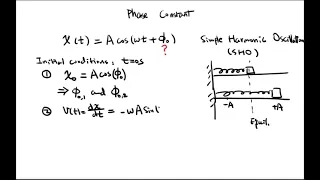 Phase Constant
x(t) = A cos(ωt + ϕ₀)
?
Initial conditions: t=0s
① x₀ = A cos(ϕ₀)
⇒ ϕ₀,₁ and ϕ₀,₂
② v(t) = dx/dt = -ωA sin(
Simple Harmonic Oscillator
(SHO)
-A +A
Equil.